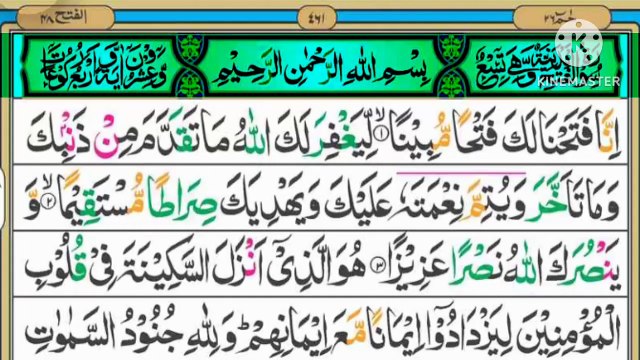 الفتح ٤٨
٤٦١
حٰمٓ ٢٦
KINEMASTER
بِسْمِ اللّٰهِ الرَّحْمٰنِ الرَّحِيْمِ
اِنَّا فَتَحْنَا لَكَ فَتْحًا مُّبِيْنًا ۙ﴿۱﴾ لِّيَغْفِرَ لَكَ اللّٰهُ مَا تَقَدَّمَ مِنْ ذَنْۢبِكَ
وَمَا تَاَخَّرَ وَيُتِمَّ نِعْمَتَهٗ عَلَيْكَ وَيَهْدِيَكَ صِرَاطًا مُّسْتَقِيْمًا ۙ﴿۲﴾ وَّ
يَنْصُرَكَ اللّٰهُ نَصْرًا عَزِيْزًا ﴿۳﴾ هُوَ الَّذِيْٓ اَنْزَلَ السَّكِيْنَةَ فِيْ قُلُوْبِ
الْمُؤْمِنِيْنَ لِيَزْدَادُوْٓا اِيْمَانًا مَّعَ اِيْمَانِهِمْ ؕ وَلِلّٰهِ جُنُوْدُ السَّمٰوٰتِ